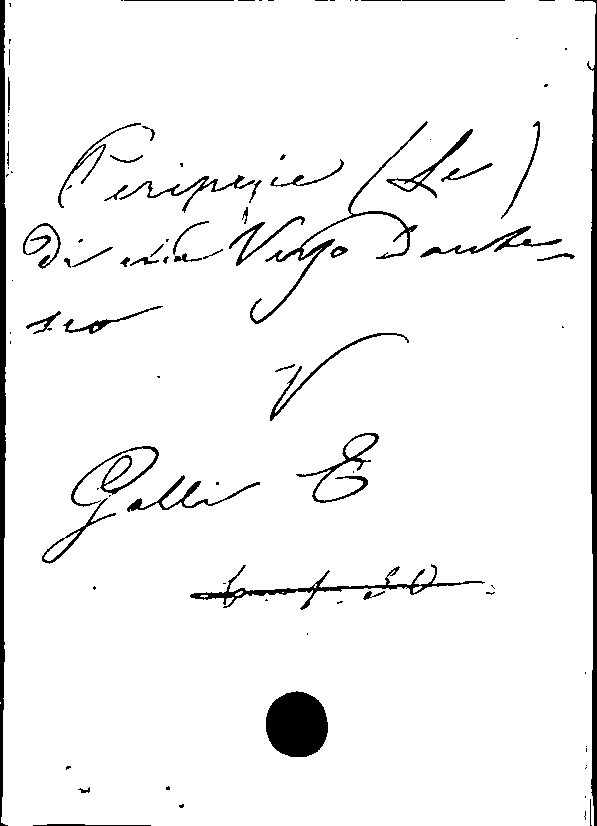 Peripezie (Le)
Di una Verso Dante-
sco
V
Galli E
6. 1. 30.